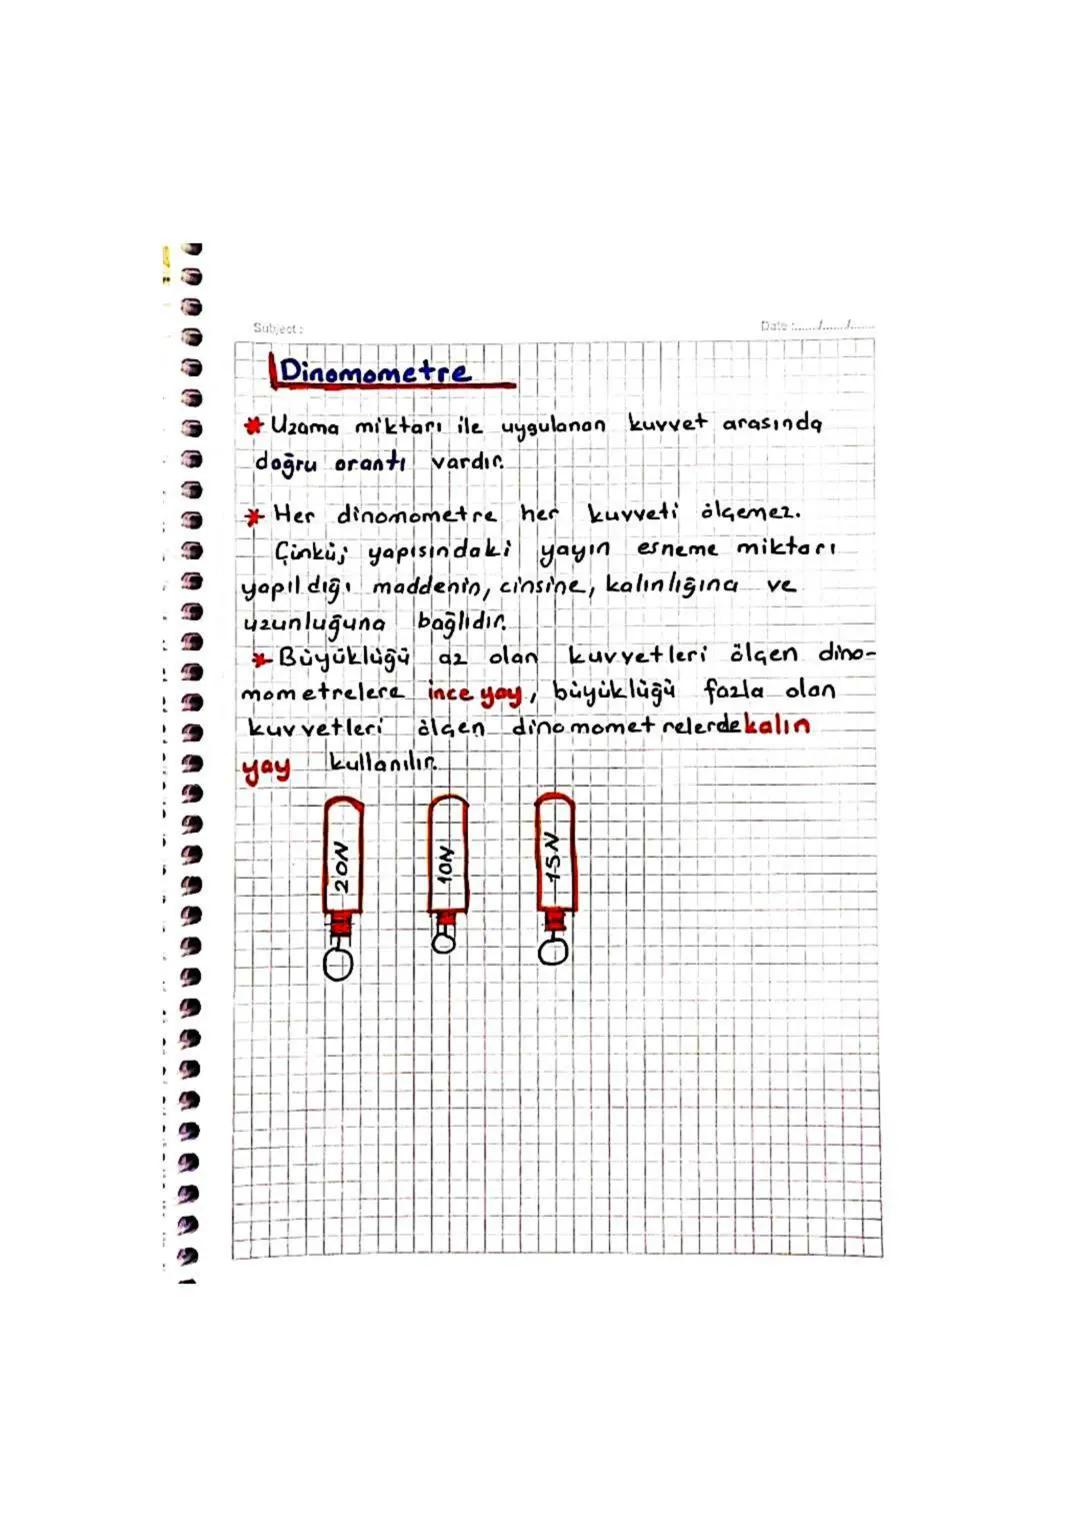 Subject :
Date :....../....../......
Dinomometre
* Uzama miktarı ile uygulanan kuvvet arasında
doğru orantı vardır.
* Her dinomometre her kuvveti ölçemez.
Çünkü; yapısındaki yayın esneme miktarı
yapıldığı maddenin, cinsine, kalınlığına ve
uzunluğuna bağlıdır.
* Büyüklüğü az olan kuvvetleri ölçen dino-
mometrelere ince yay, büyüklüğü fazla olan
kuvvetleri ölçen dinomometrelerde kalın
yay kullanılır.
20N
10N
15N